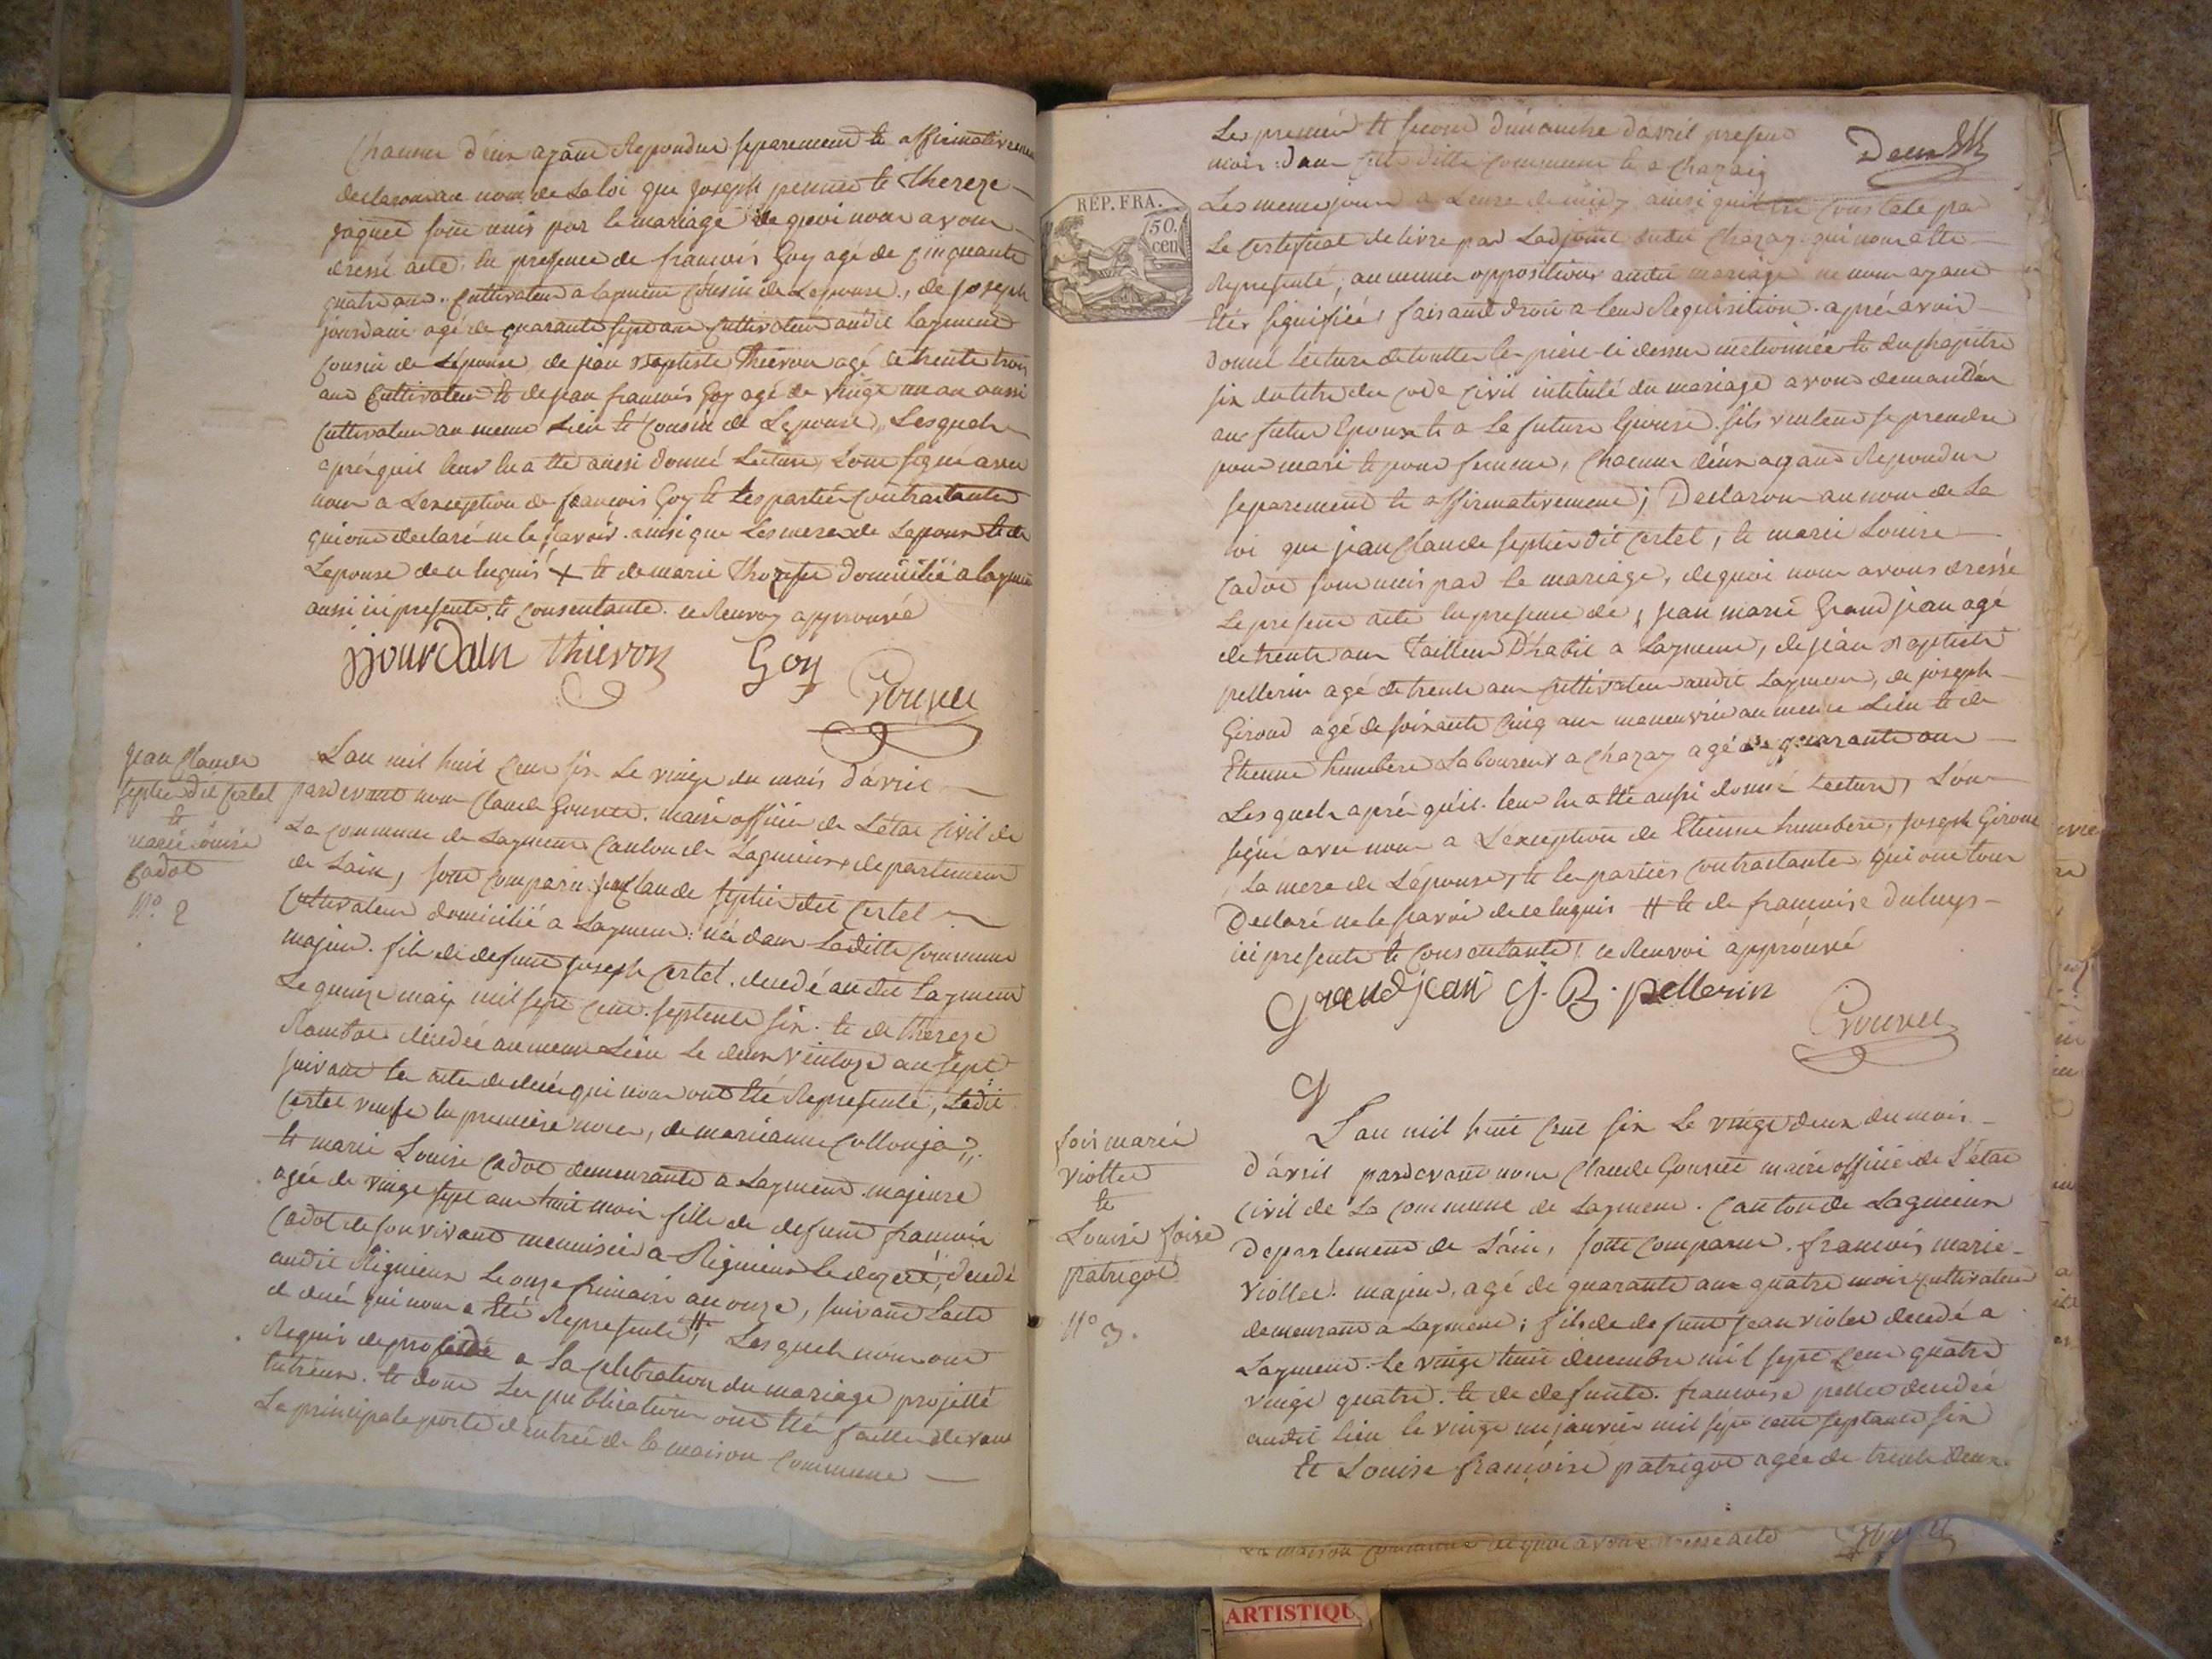 Chacun d'eux ayant Repondu separement et affirmativement
declarons au nom de La loi que joseph et thereze
sont unis par le mariage de quoi nous avons
dressé acte, En presence de francois Goy agé de Cinquante
quatre ans. Cultivateur a Lagneu cousin de Lepouse, de joseph
jourdain agé de quarante sept ans Cultivateur audit
Cousin de Lepouse, de jean Baptiste Thievon agé de trente trois
ans Cultivateur et de jean francois Goy agé de vingt un an aussi
Cultivateur au meme Lieu et Cousin de Lepouse, Lesquels
aprés quil leur En a Eté aussi donné Lecture, L'ont signé avec
nous a Lexception de françois Goy et Les parties Contractantes
qui ont declaré ne le sçavoir. ainsi que Les mere de Lepoux et de
Lepouse de ce Enquis + et de marie domicilié a
aussi ici presente et Consentante. ce Renvoy approuvée
jjourdain thievon Goy
Gouvet
jean Claude
septier dit Certel
et
marie Louise
Cadot
N° 2
L'an mil huit Cent six Le vingt du mois d'avril
pardevant nous Claude Gouvet. maire officier de L'etat Civil de
La Commune de Canton de Lagnieux departement
de Lain, sont Comparu jean Claude septier dit Certel
Cultivateur domicilié a né dans Laditte Commune
majeur. fils de defunt joseph Certel. decedé audit
Le quinze mai mil sept Cent septente six. et de thereze
decedée au meme Lieu Le deux ventoze an sept
suivant les actes de decés qui nous ont Eté Representé, Ledit
Certel veuf En premiere noces, de marianne Collonja
et marie Louise Cadot demeurante a majeure
agée de vingt sept ans huit mois fille de defunt francois
Cadot de son vivant menuisier a decedé
audit Le onze frimaire an onze, suivant Lacte
de decés qui nous a Eté Representé, # Lesquels nous ont
Requis de proceder a La Celebration du mariage projetté
Entreux. et dont Les publications ont Eté faittes devant
La principale porte d'entrée de la maison Commune
Les premier et second dimanche d'avril present
mois. dans cette ditte Commune et a Chazay
Deux
RÉP. FRA.
50.
cen
Les meme jours a Leure de midy ainsi quil Est Constaté par
Le Certificat delivre par Ladjoint dudit Chazay qui nous a Eté
Representé, aucunes oppositions audit mariage ne nous ayant
Eté signifiées faisant droit a leur Requisition. aprés avoir
donné Lecture de touttes les piece ci dessus metionnées et du chapitre
six du titre du Code Civil intitulé du mariage avons demandé
au futur Epoux et a La future Epouse. sils veulent se prendre
pour mari et pour femme, Chacun d'eux ayant Repondu
separement et affirmativement; Declarons au nom de La
loi que jean Claude septier dit Certel, et marie Louise
Cadot sont unis par Le mariage, de quoi nous avons dressé
Le present acte En presence de, jean marie Grandjean agé
de trente ans tailleur D'habit a de jean Baptiste
pellerin agé de trente ans Cultivateur audit de joseph
Giroud agé de soixante Cinq ans maneuvrier au meme Lieu et de
Etienne humbert Laboureur a Chazay agé de quarante ans
Lesquels aprés qu'il leur En a Eté aussi donné Lecture, L'ont
signé avec nous a L'exception de Etienne humbert, joseph Giroud
La mere de Lepouse, et les parties Contractantes qui ont tous
Declaré ne le savoir de ce Enquis # et de francoise
ici presente et Consentante, ce Renvoi approuvé
Grandjean J. B. pellerin
Gouvet
fois marie
viollet
et
Louise foise
patrigot
N° 3.
L'an mil huit Cent six Le vingt deux du mois
d'avril pardevant nous Claude Gouvet maire officier de L'état
Civil de La Commune de Canton de Lagnieux
Departement de L'ain, sont Comparus. francois marie
viollet. majeur, agé de quarante ans quatre mois Cultivateur
demeurant a fils de defunt jean violet decedé a
Le vingt huit decembre mil sept Cent quatre
vingt quatre. et de defunte. francoise decedée
audit Lieu le vingt un janvier mil sept Cent septante six
Et Louise françoise patrigot agée de trente deux
La maison Commune de quoi avons dressé acte
ARTISTIQU